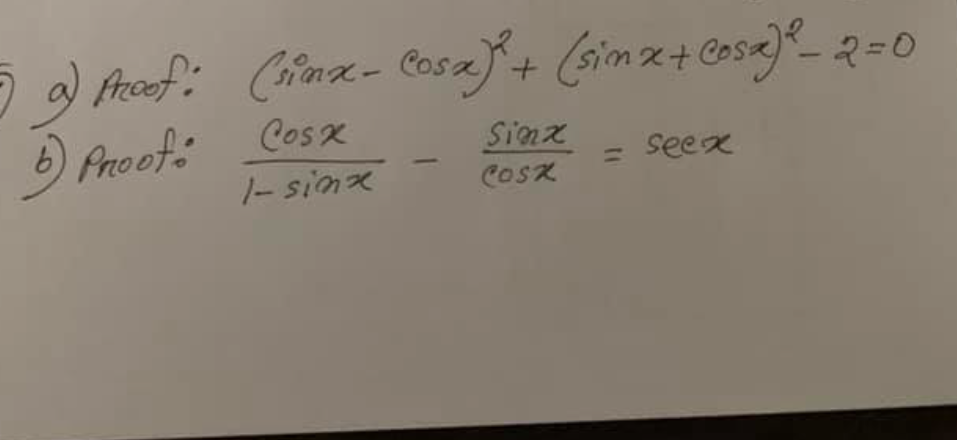 a) Proof: (sinx - cosx)² + (sinx + cosx)² - 2 = 0
b) Proof: cosx / 1 - sinx - sinx / cosx = secx